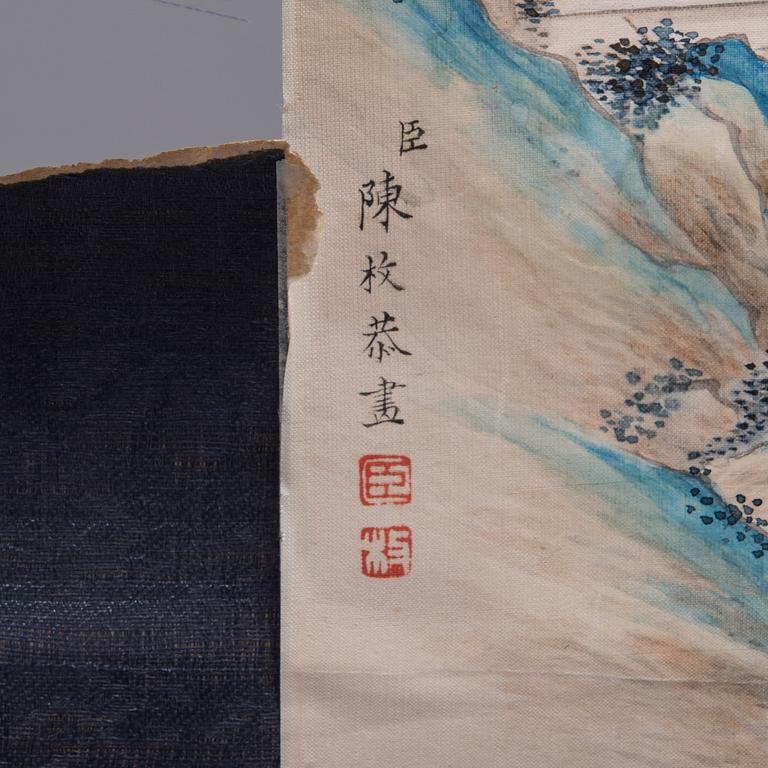 臣陳枚恭畫
臣
枚